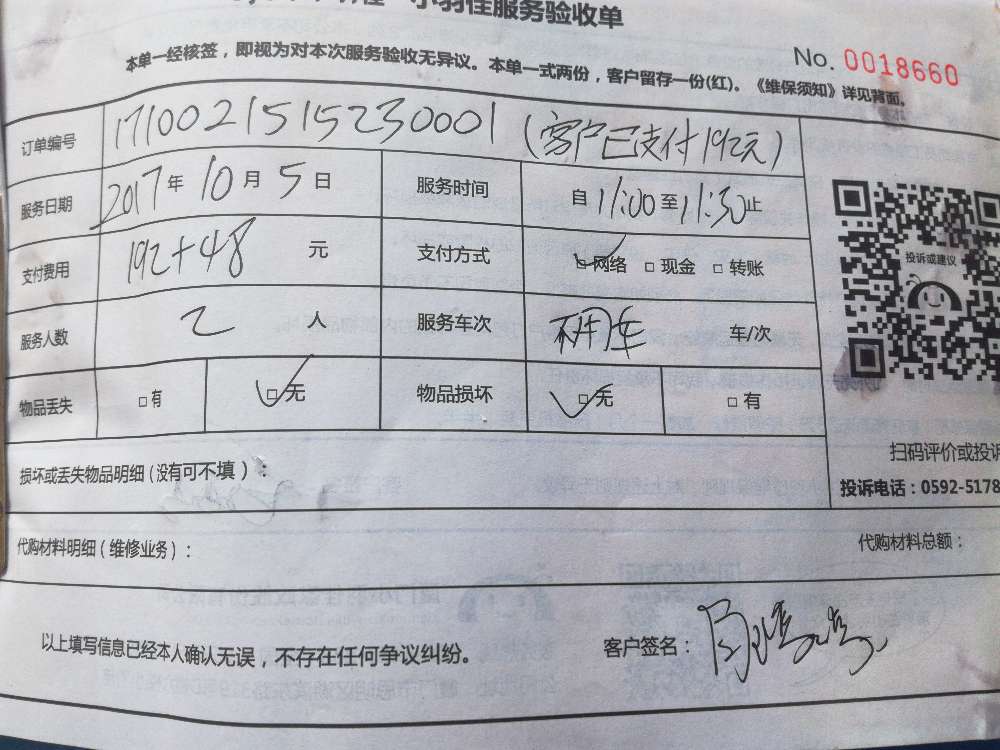 小羽佳服务验收单
本单一经核签，即视为对本次服务验收无异议。本单一式两份，客户留存一份(红)。《维保须知》详见背面。
No. 0018660
订单编号 1710021515230001 (客户已支付192元)
服务日期 2017年10月5日 服务时间 自11:00至11:30止
支付费用 192+48 元 支付方式 □网络 □现金 □转账
投诉或建议
服务人数 2 人 服务车次 不用车 车/次
物品丢失 □有 □无 物品损坏 □无 □有
扫码评价或投诉
损坏或丢失物品明细(没有可不填)：
投诉电话：0592-5178
代购材料明细(维修业务)：
代购材料总额：
以上填写信息已经本人确认无误，不存在任何争议纠纷。
客户签名：